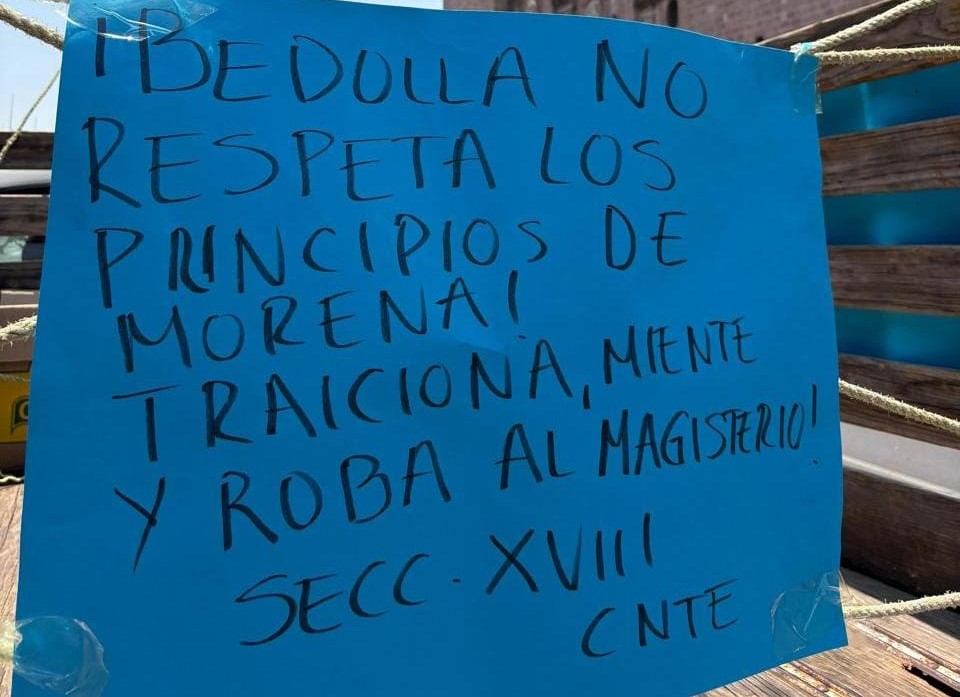 ¡BEDOLLA NO
RESPETA LOS
PRINCIPIOS DE
MORENA!
TRAICIONA, MIENTE
Y ROBA AL MAGISTERIO!
SECC. XVIII
CNTE